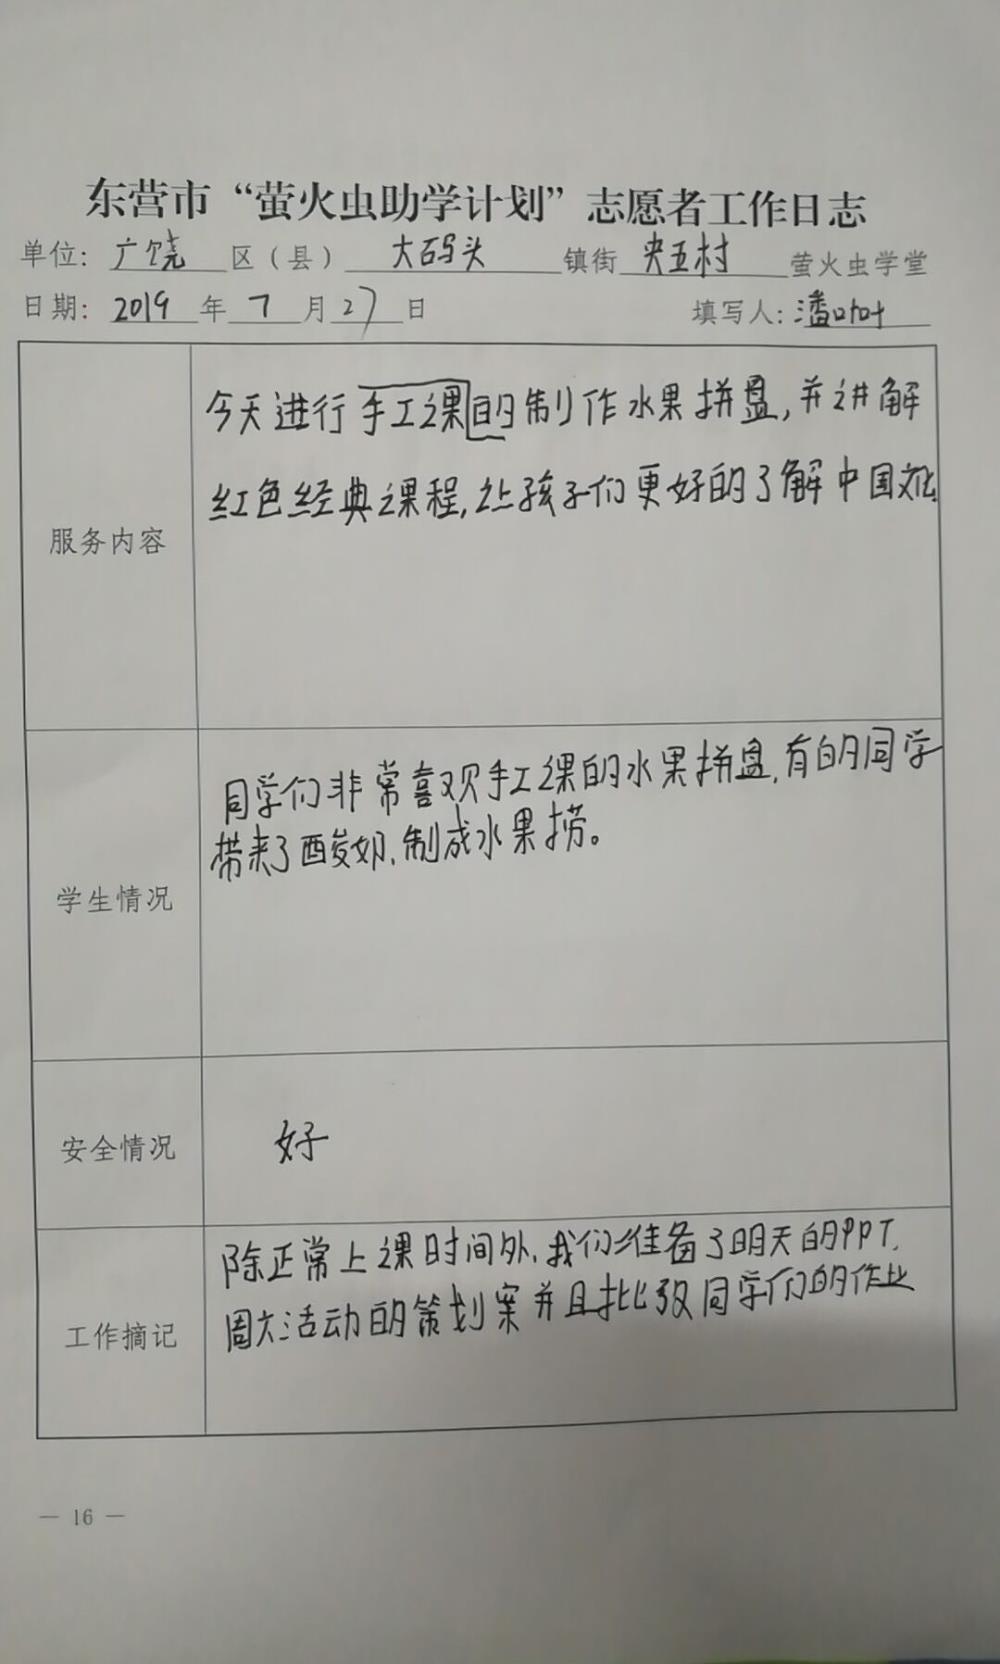 东营市“萤火虫助学计划”志愿者工作日志
单位：广饶区（县）大码头镇街央五村萤火虫学堂
日期：2019年7月27日 填写人：潘叶叶
服务内容
今天进行手工课的制作水果拼盘,并讲解
红色经典课程,让孩子们更好的了解中国文化.
学生情况
同学们非常喜欢手工课的水果拼盘,有的同学
带来了酸奶,制成水果捞。
安全情况
好
工作摘记
除正常上课时间外,我们准备了明天的PPT,
周六活动的策划案并且批改同学们的作业
— 16 —